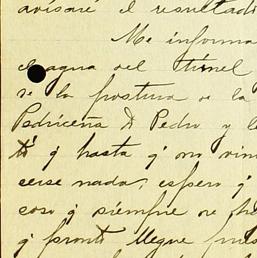 avisaré el resultad
Me informa
el agua del túnel
se la postura de la
Pedriceña D Pedro y l
q hasta q no vin
cerse nada, espero q
coso q siempre se
q pronto llegue